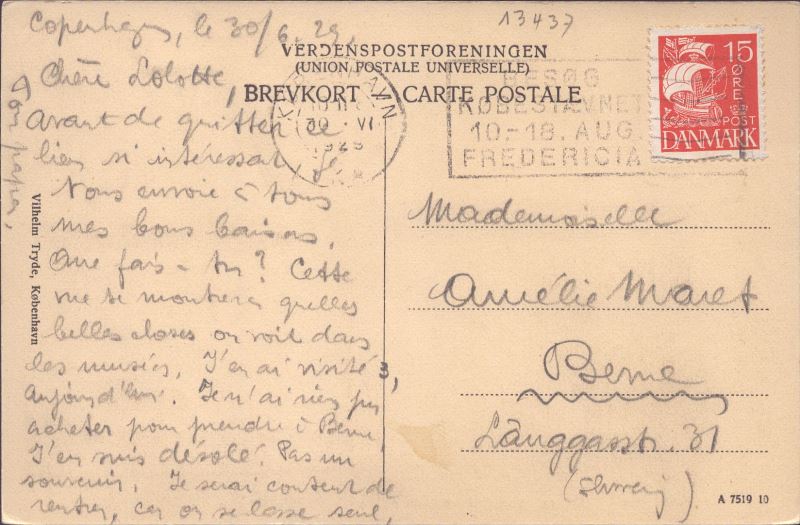 13437
Copenhague, le 30/6. 29.
Chère Lolotte,
Avant de quitter ce
lieu si intéressant, je
Vous envoie à tous
mes bons baisers.
Que fais-tu? Cette
vue te montrera quelles
belles choses on voit dans
les musées. J'en ai visité 3,
aujourd'hui. Je n'ai rien pu
acheter pour prendre à Berne.
J'en suis désolé. Pas un
souvenir. Je serai content de
rentrer, car on se lasse seul,
Ton papa,
VERDENSPOSTFORENINGEN
(UNION POSTALE UNIVERSELLE)
BREVKORT
CARTE POSTALE
KØBENHAVN
30 VI
1929
BESØG
KØBESTÆVNET
10-18. AUG.
FREDERICIA
15
ØRE
POST
DANMARK
Mademoiselle
Amélie Maret
Berne
Länggasstr. 31
(Schweiz)
Vilhelm Tryde, København
A 7519 10